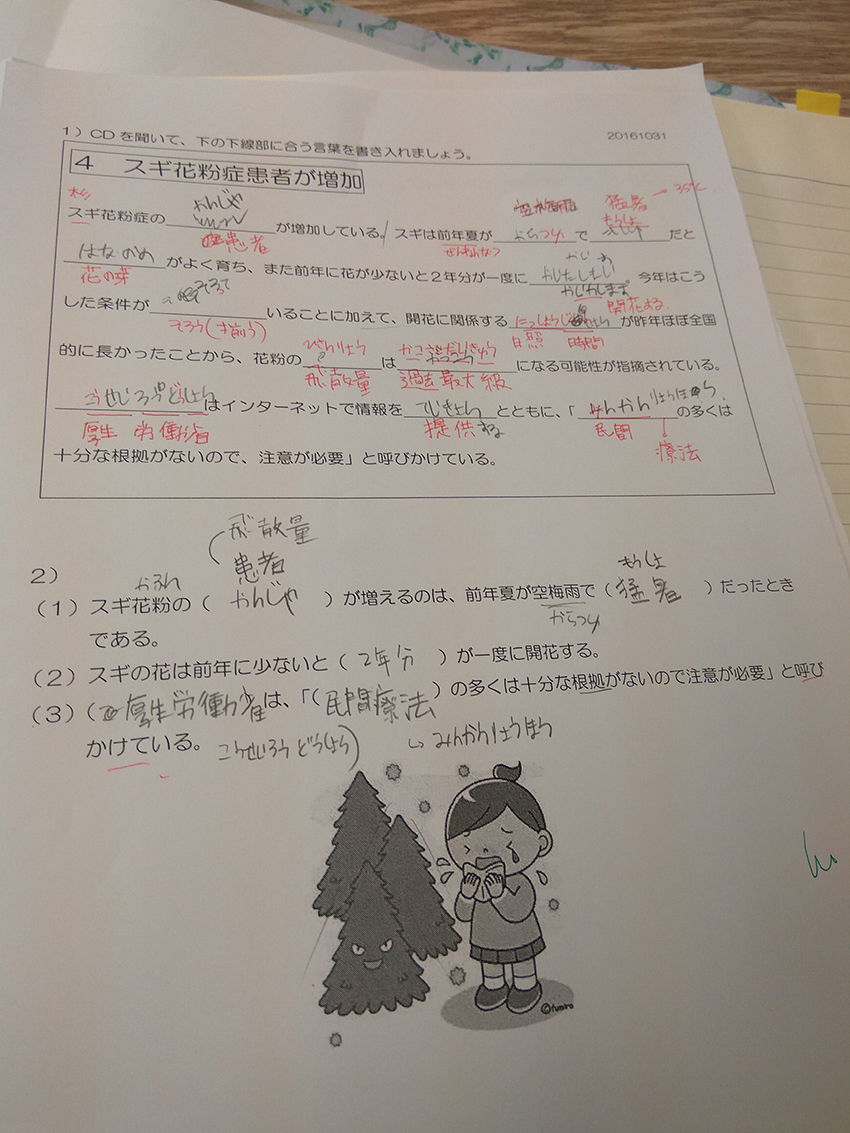 1）CDを聞いて、下の下線部に合う言葉を書き入れましょう。
20161031
4 スギ花粉症患者が増加
杉
かんじゃ
空梅雨
猛暑
35℃
スギ花粉症の が増加している。スギは前年夏が からつゆ で だと
患者
ぜんねんなつ
はなのめ がよく育ち、また前年に花が少ないと2年分が一度に 。今年はこう
花の芽
開花する
した条件が そろって いることに加えて、開花に関係する にっしょうじ が昨年ほぼ全国
そろう(才前う)
日照 時間
ひさんりょう
的に長かったことから、花粉の は になる可能性が指摘されている。
飛散量
過去最大級
はインターネットで情報を ていきょう とともに、「 みんかんりょうほう の多くは
厚生 労働省
提供する
民間
療法
十分な根拠がないので、注意が必要」と呼びかけている。
飛散量
2）
患者
かふん
もうしょ
（1）スギ花粉の（ かんじゃ ）が増えるのは、前年夏が空梅雨で（猛暑 ）だったとき
からつゆ
である。
（2）スギの花は前年に少ないと（ 2年分 ）が一度に開花する。
（3）（厚生労働省は、「（民間療法 ）の多くは十分な根拠がないので注意が必要」と呼び
かけている。
こうせいろうどうしょう)
みんかんりょうほう
©fumira